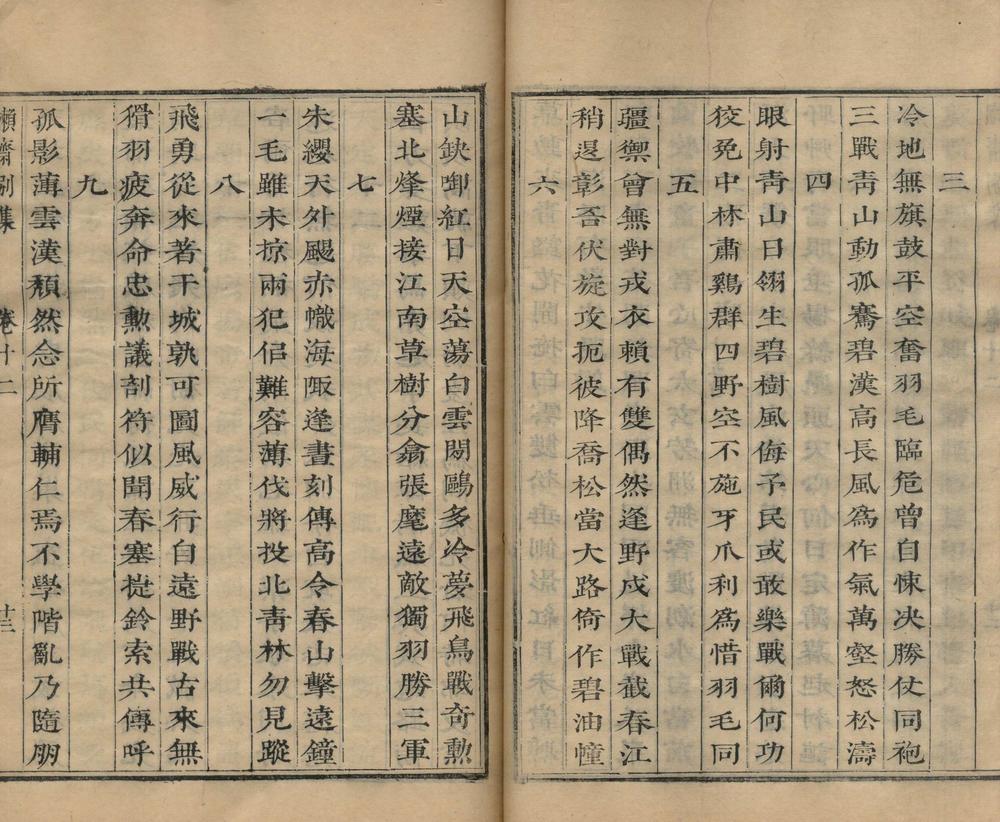 三
冷地無旗鼓平空奮羽毛臨危曾自悚决勝仗同袍
三戰靑山動孤騫碧漢高長風爲作氣萬壑怒松濤
四
眼射靑山日翎生碧樹風侮予民或敢樂戰爾何功
狡兔中林肅鷄群四野空不施牙爪利爲惜羽毛同
五
疆禦曾無對戎衣賴有雙偶然逢野戍大戰截春江
稍遅彰吾伏旋攻扼彼降喬松當大路倚作碧油幢
六
山鈌啣紅日天空蕩白雲閒鷗多冷夢飛鳥戰奇勲
塞北烽煙接江南草樹分翕張麾遠敵獨羽勝三軍
七
朱纓天外颺赤幟海陬逢晝刻傳高令春山擊遠鐘
一毛雖未掠兩犯侣難容薄伐將投北靑林勿見蹤
八
飛勇從來著干城孰可圖風威行自遠野戰古來無
猾羽疲奔命忠勲議剖符似聞春塞㨗鈴索共傳呼
九
孤影薄雲漢頹然念所膺輔仁焉不學階亂乃隨朋
懶齋别集
卷十二
十三